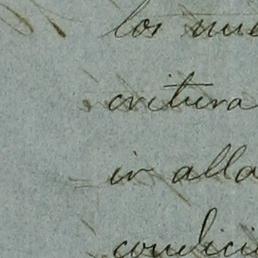 los
critura
ir alla
condici